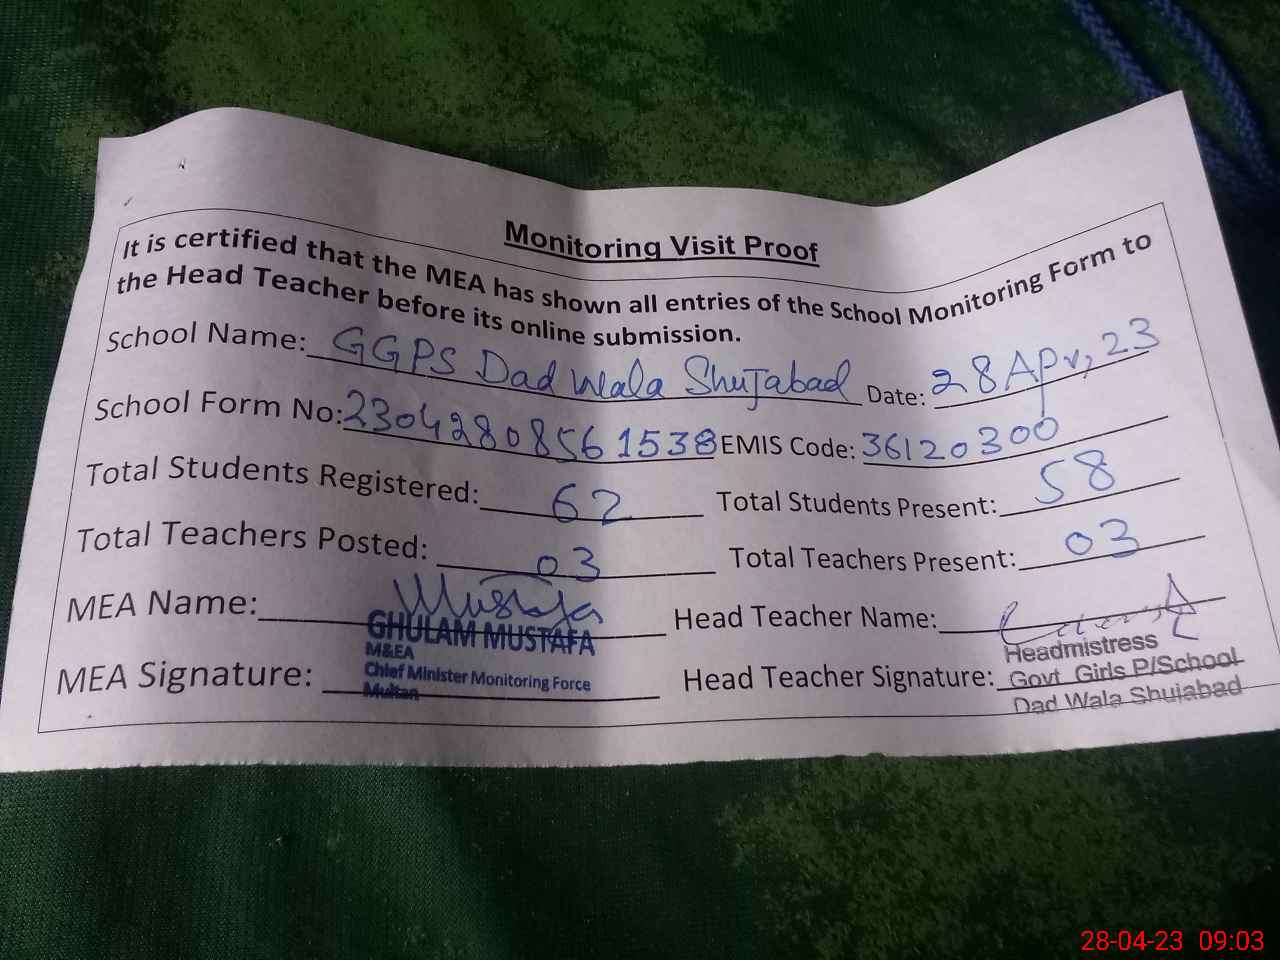 Monitoring Visit Proof
It is certified that the MEA has shown all entries of the School Monitoring Form to
the Head Teacher before its online submission.
School Name: GGPS Dad Wala Shujabad Date: 28 Apr, 23
School Form No: 2304280856 1538 EMIS Code: 36120300
Total Students Registered: 62 Total Students Present: 58
Total Teachers Posted: 03 Total Teachers Present: 03
MEA Name: Mustafa Head Teacher Name:
GHULAM MUSTAFA
M&EA
Chief Minister Monitoring Force
Multan
Headmistress
MEA Signature: Head Teacher Signature: Govt Girls P/School
Dad Wala Shujabad
28-04-23 09:03